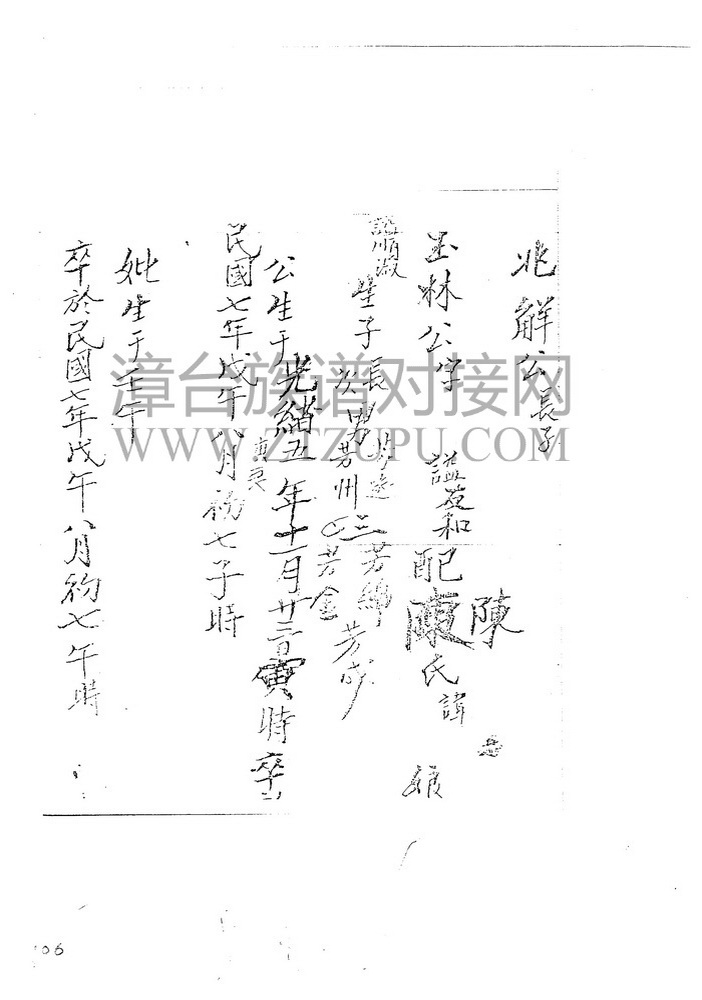 兆解公長子
玉林公字 諡友和 配陳氏諱 娘
陳
諡順淑
生子長男芳遠 三芳綿 芳成
次男芳州 四芳金
公生于光緒五年十一月廿三日寅時卒
庚辰
民國七年戊午八月初七子時
妣生于壬午
卒於民國七年戊午八月初七午時
漳台族谱对接网
WWW.ZTZUPU.COM
06